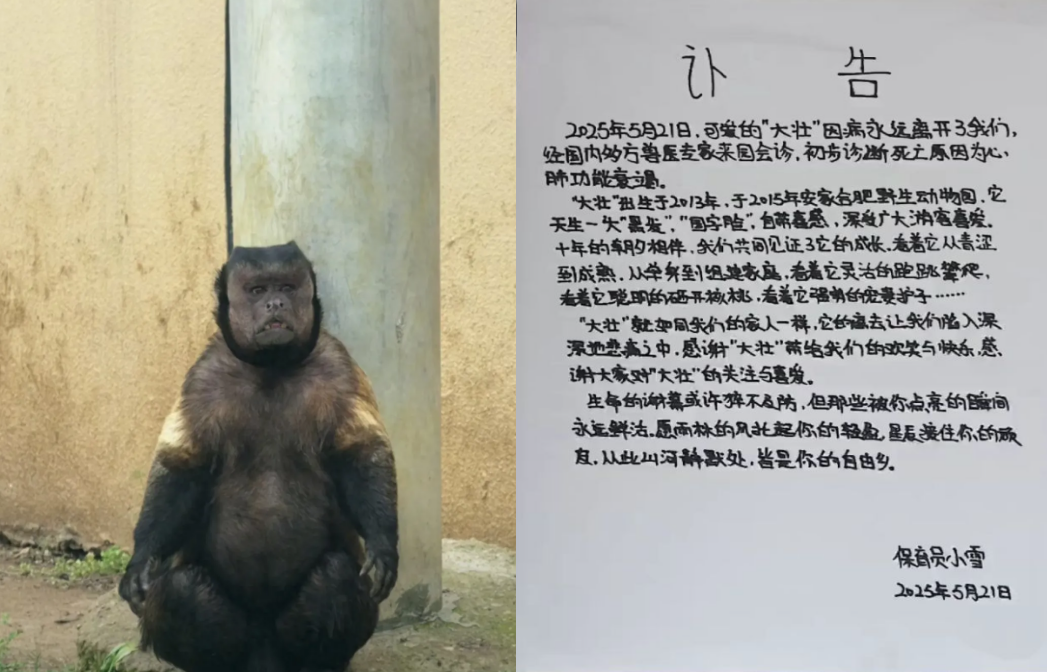 讣 告
2025年5月21日，可爱的“大壮”因病永远离开了我们，
经国内多方兽医专家来园会诊，初步诊断死亡原因为心、
肺功能衰竭。
“大壮”出生于2013年，于2015年安家合肥野生动物园，它
天生一头“黑发”，“国字脸”，自带喜感，深受广大游客喜爱。
十年的朝夕相伴，我们共同见证了它的成长，看着它从青涩
到成熟，从单身到组建家庭，看着它灵活的跑跳攀爬，
看着它聪明的砸开核桃，看着它强势的宠妻护子……
“大壮”就如同我们的家人一样，它的离去让我们陷入深
深地悲痛之中，感谢“大壮”带给我们的欢笑与快乐，感
谢大家对“大壮”的关注与喜爱。
生命的谢幕或许猝不及防，但那些被你点亮的瞬间
永远鲜活。愿雨林的风托起你的轻盈，星辰接住你的顽
皮，从此山河静默处，皆是你的自由乡。
保育员小雪
2025年5月21日